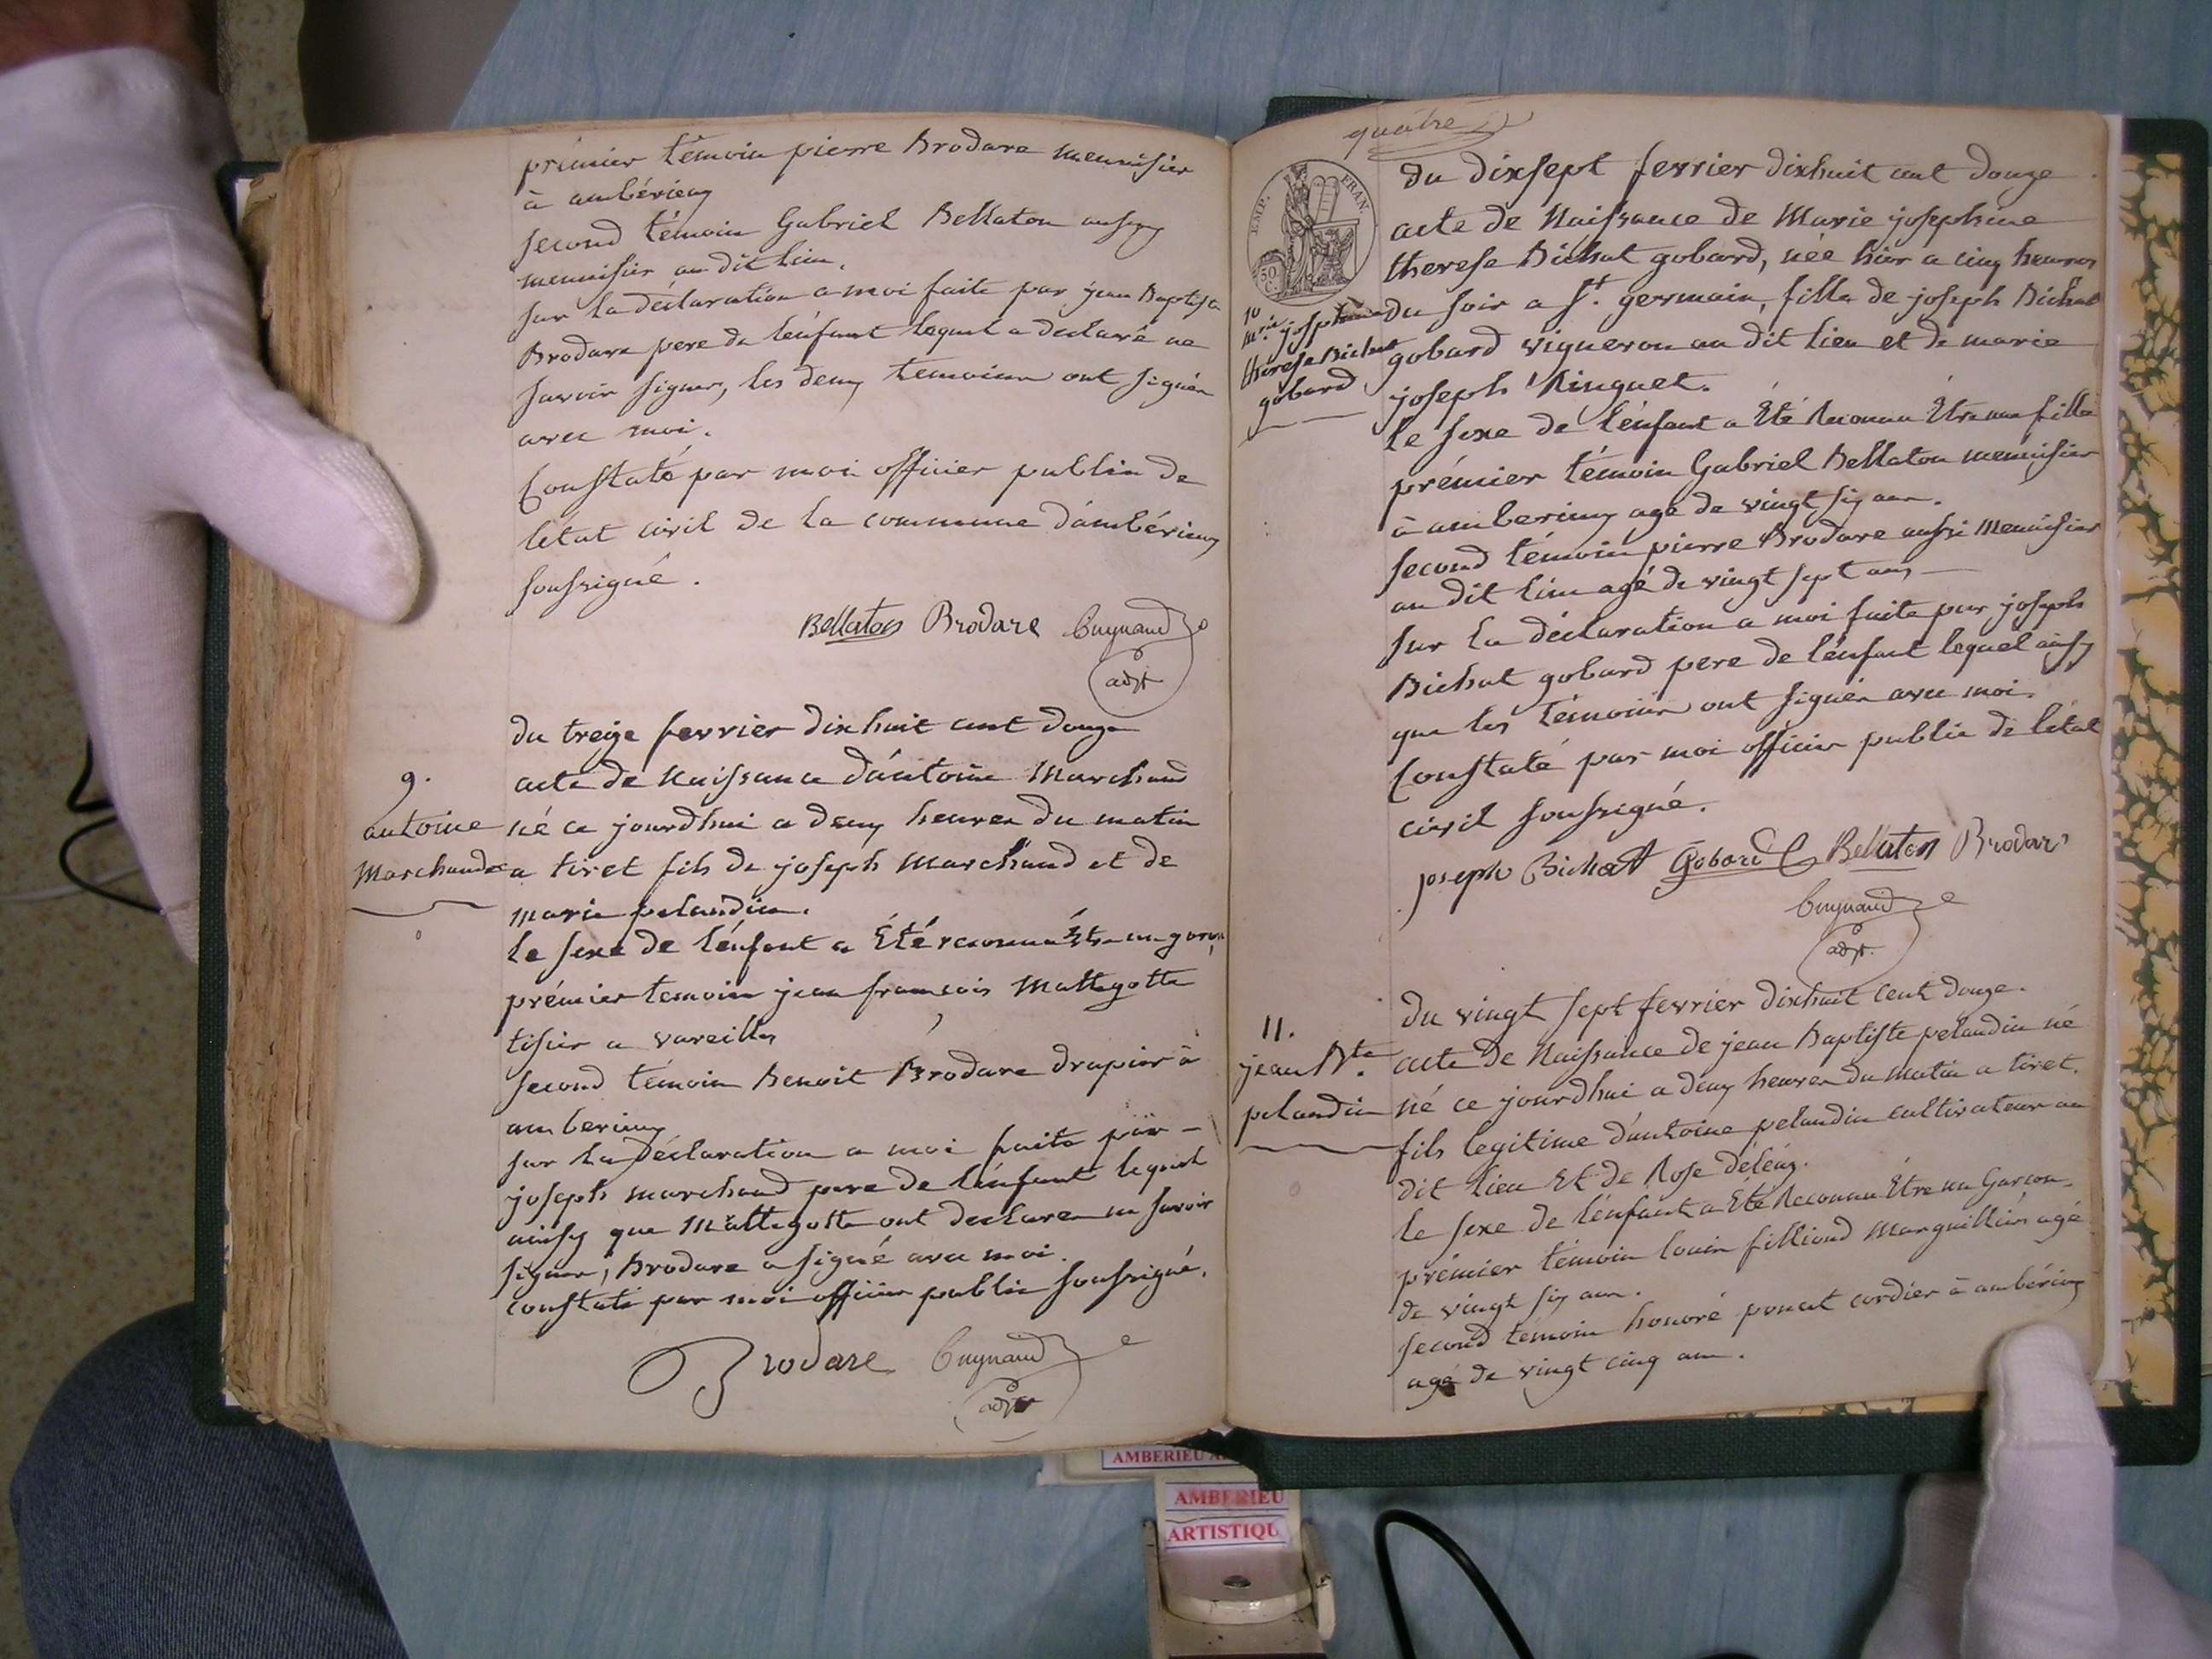 prémier témoin pierre Brodare menuisier
à ambérieuy
second témoin Gabriel Bellaton ausy
menuisier au dit lieu.
sur la déclaration a moi faite par jean Baptiste
Brodare pere de lénfant lequel a declaré ne
savoir signer, les deuy temoins ont signés
avec moi.
Constaté par moi officier public de
létat civil de la commune dámbérieuy
soussigné.
Bellaton Brodare Cuynaud
adjt
du treize fevrier dixhuit cent douze
9.
acte de Naissance dántoine Marchand
antoine
né ce jourdhui a deuy heures du matin
Marchand
a tiret fils de joseph Marchand et de
marie pelandin.
le sexe de lénfant a Été reconnu Être un garçon
prémier temoin jean françois Mattegotte
tisier a vareilles
second témoin Benoit Brodare drapier à
amberieuy
sur la déclaration a moi faite par -
joseph marchand pere de lénfant lequel
ainsy que Mattegotte ont declarés ne savoir
signer, Brodare a signé avec moi.
constaté par moi officier public soussigné.
Brodare Cuynaud
adjt
quatre
EMP. FRAN.
50 C.
du dixsept fevrier dixhuit cent douze
acte de Naissance de Marie josephine
therese Bichat gobard, née hier a cinq heures
du soir a St. germain, fille de joseph Bichat
10
mrie josephine
therese Bichat
gobard
gobard vigneron au dit lieu et de marie
joseph Ringuet.
le sexe de lénfant a Été Reconnu Être une fille
prémier témoin Gabriel Bellaton menuisier
à amberieuy agé de vingt siy ans.
second témoin pierre Brodare aussi Menuisier
au dit lieu agé de vingt sept ans
sur la déclaration a moi faite par joseph
Bichat gobard pere de lénfant lequel ainsy
que les témoins ont signés avec moi.
Constaté par moi officier public de létat
civil soussigné.
joseph Bichat Gobard Bellaton Brodare
Cuynaud
adjt.
du vingt sept fevrier dixhuit cent douze.
11.
jean Bte.
pelandin
acte de Naissance de jean Baptiste pelandin né
né ce jourdhui a deuy heures du matin a tiret.
fils legitime dántoine pelandin cultivateur au
dit lieu Et de Rose déléaz.
le sexe de lénfant a Été Reconnu Être un Garcon.
prémier témoin louis filliond Marguillier agé
de vingt siy ans.
second témoin honoré poncet cordier à ambérieuy
agé de vingt cinq ans.
AMBERIEU
AMBERIEU
ARTISTIQU